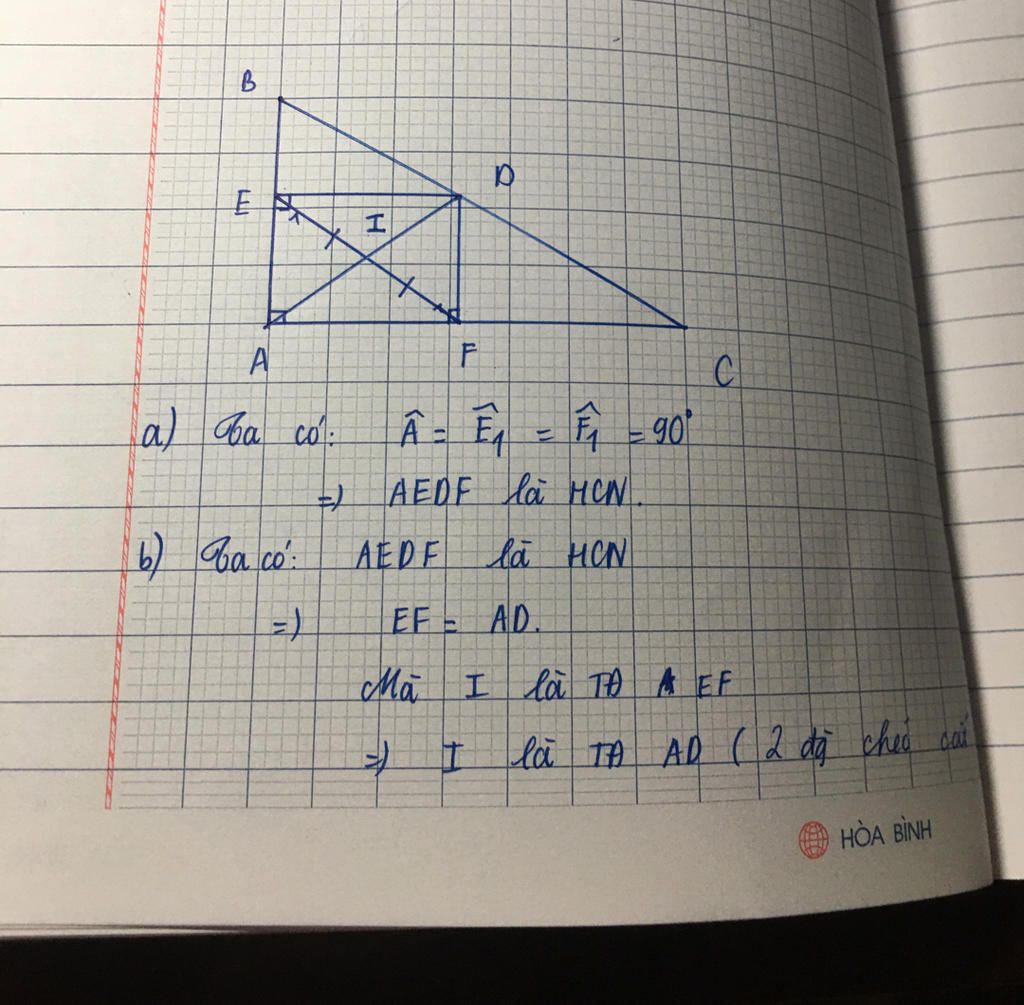 B
D
E
1
I
A
F
C
a) Ta có: Â = Ê₁ = F̂₁ = 90°
=> AEDF là HCN.
b) Ta có: AEDF là HCN
=> EF = AD.
Mà I là TĐ EF
=> I là TĐ AD ( 2 đg chéo cắt
HÒA BÌNH